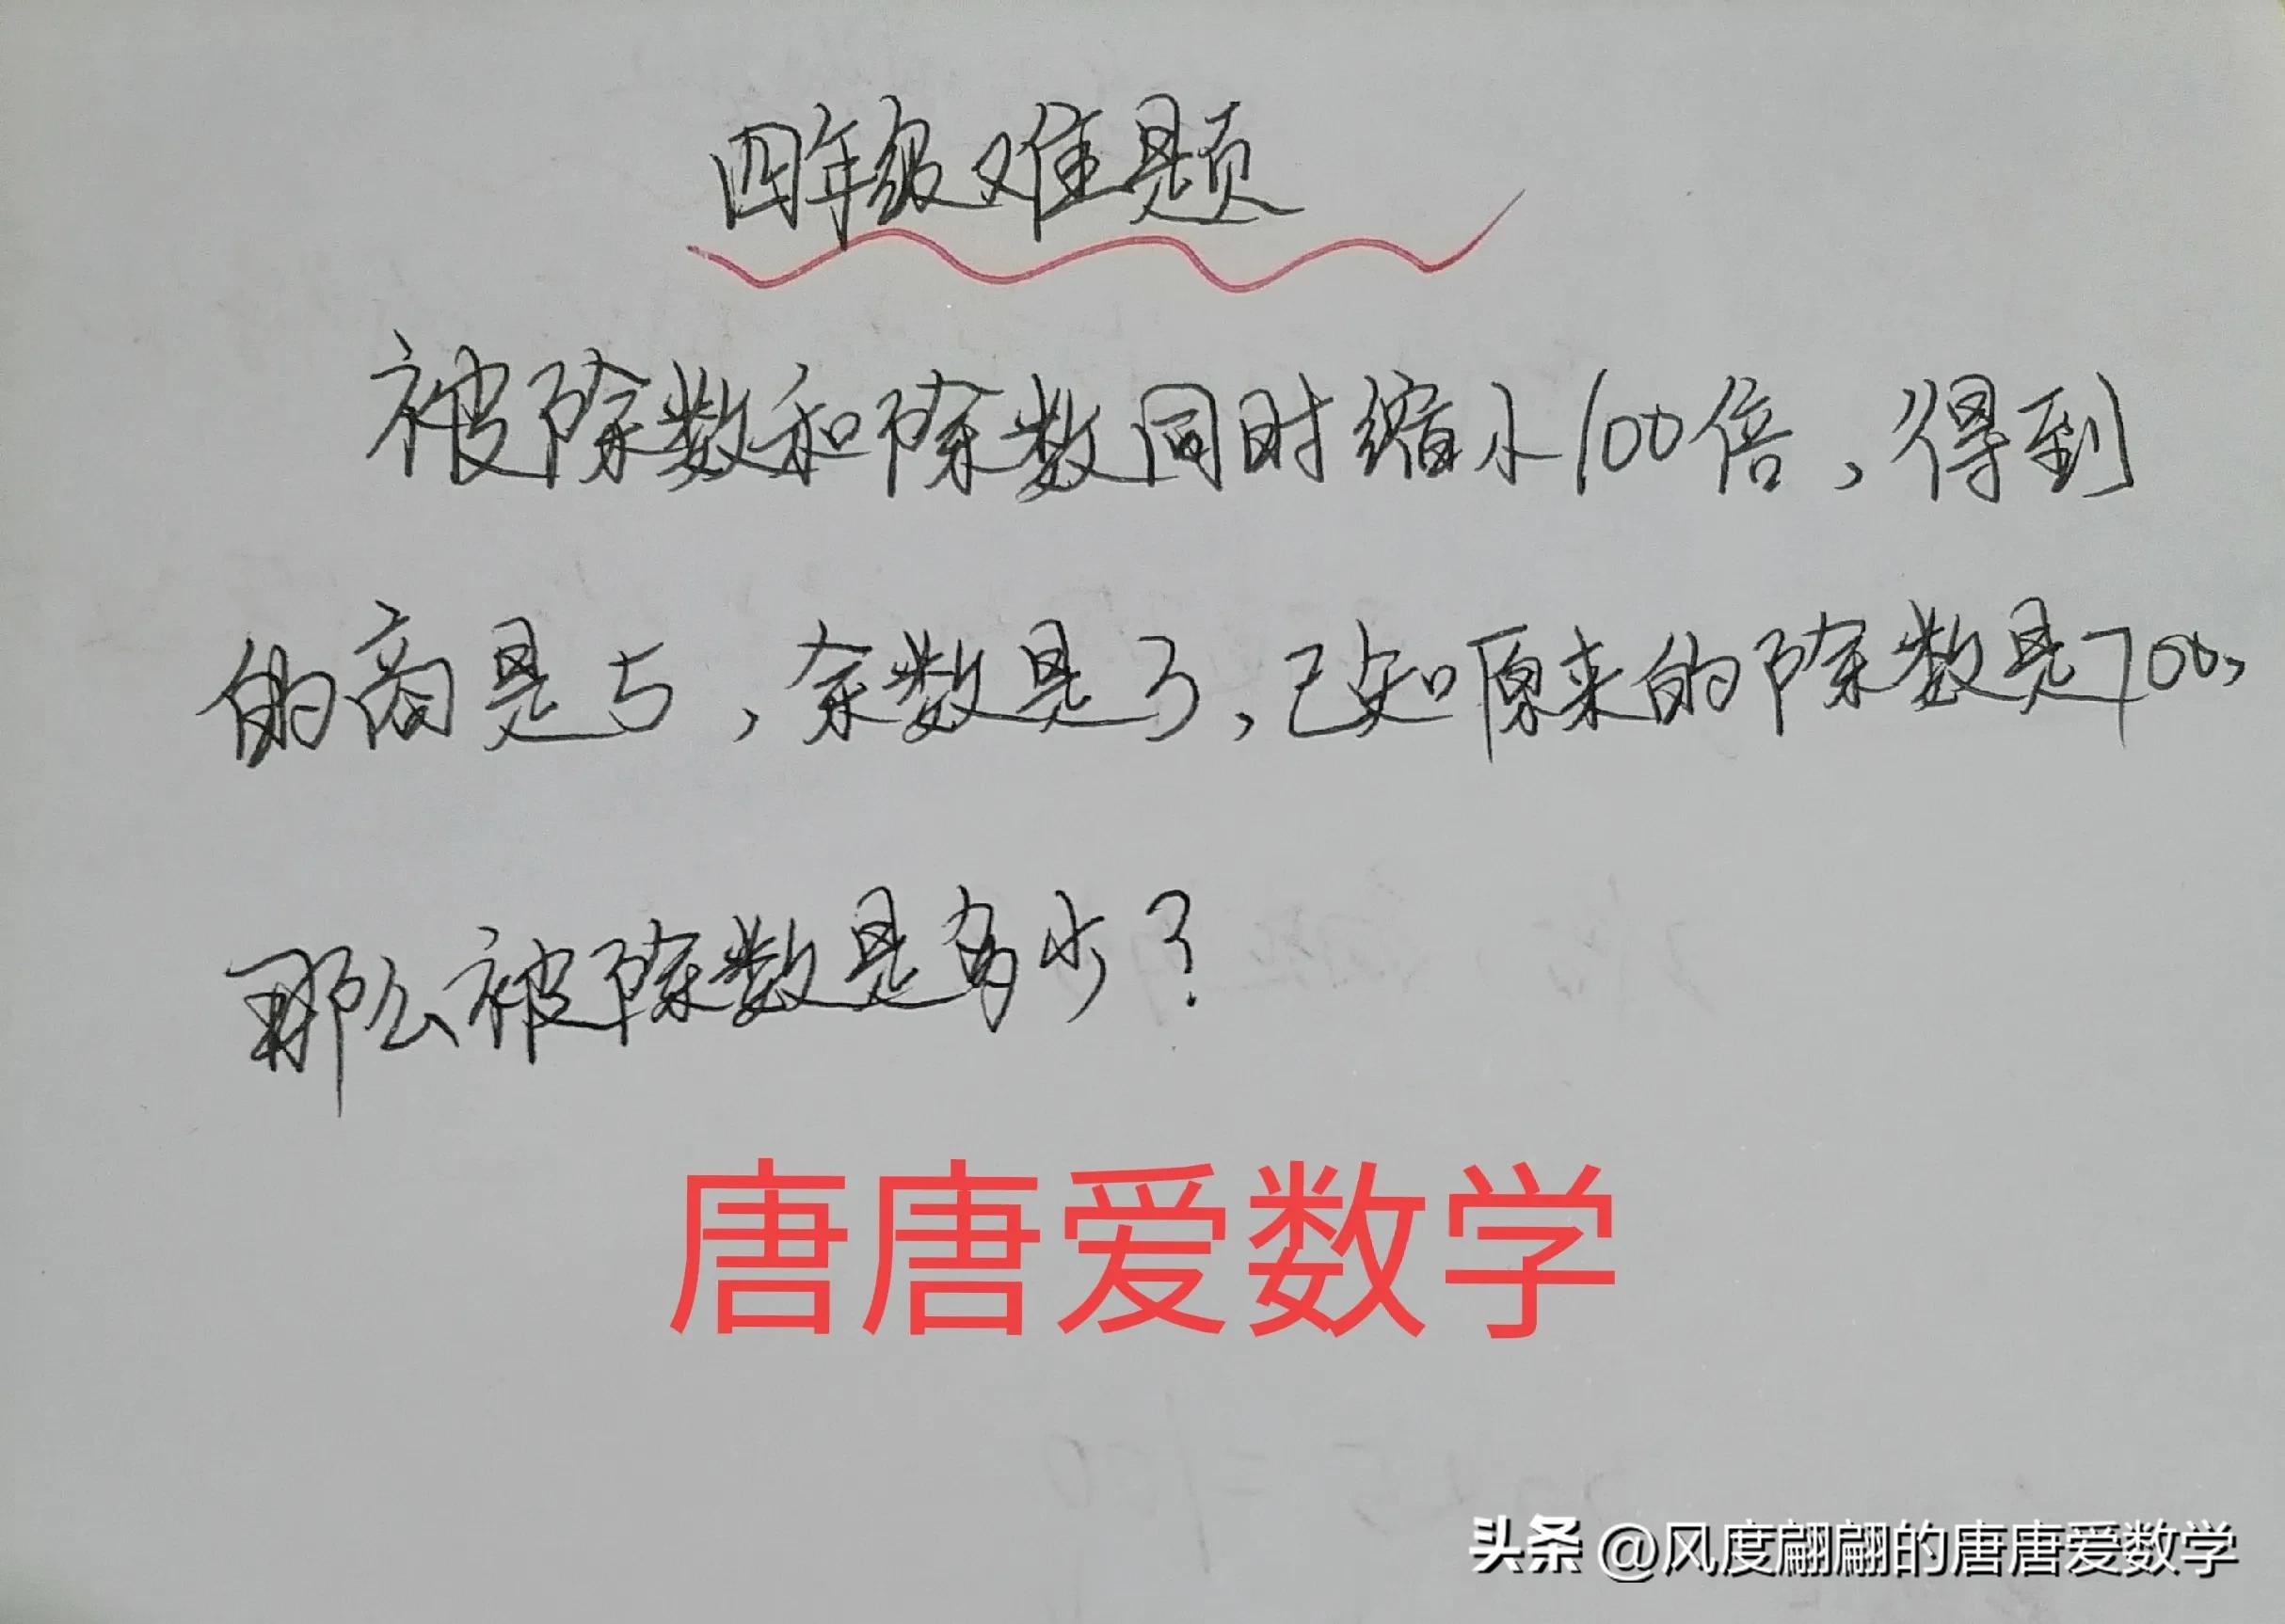 四年级难题
被除数和除数同时缩小100倍,得到
的商是5,余数是3,已知原来的除数是700,
那么被除数是多少?
唐唐爱数学
头条 @风度翩翩的唐唐爱数学